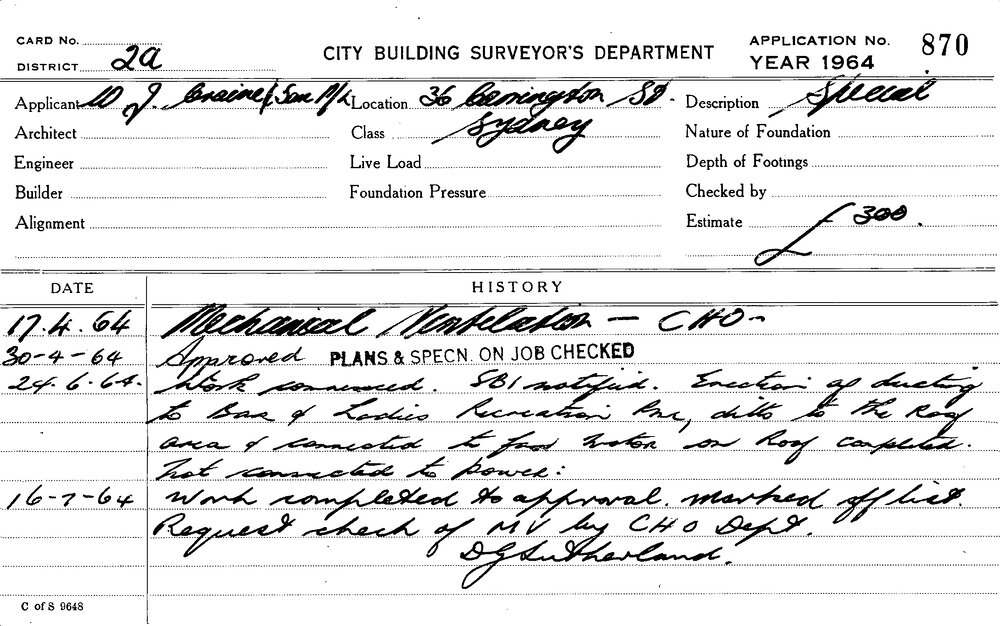 CARD No.
DISTRICT 2a
CITY BUILDING SURVEYOR'S DEPARTMENT
APPLICATION No. 870
YEAR 1964
Applicant W J. Craine & Son P/L
Location 36 Carrington St.
Sydney
Description Special
Architect
Class
Nature of Foundation
Engineer
Live Load
Depth of Footings
Builder
Foundation Pressure
Checked by
Alignment
Estimate £ 300.
DATE
HISTORY
17.4.64 Mechanical Ventilation — CHO-
30-4-64 Approved PLANS & SPECN. ON JOB CHECKED
24.6.64. Work commenced. SBI notified. Erection of ducting
to Bar & Ladies Recreation Rm, ditto to the Roof
area & connected to fan motor on Roof completed.
Not connected to power:
16-7-64 Work completed to approval. marked off list.
Request check of MV by CHO Dept.
DGSutherland.
C of S 9648